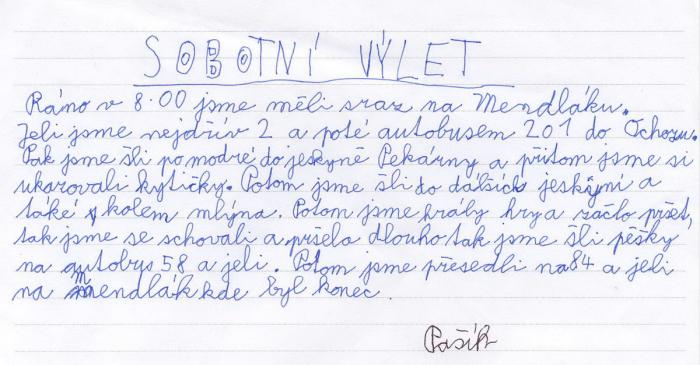 SOBOTNÍ VÝLET
Ráno v 8.00 jsme měli sraz na Mendláku.
Jeli jsme nejdřív 2 a poté autobusem 201 do Ochozu.
Pak jsme šli po modré do jeskyně Pekárny a přitom jsme si
ukazovali kytičky. Potom jsme šli do dalších jeskyní a
také kolem mlýna. Potom jsme hrály hry a začlo pršet,
tak jsme se schovali a pršela dlouho tak jsme šli pěšky
na autobys 58 a jeli. Potom jsme přesedli na 84 a jeli
na mendlák kde byl konec.
Pašík